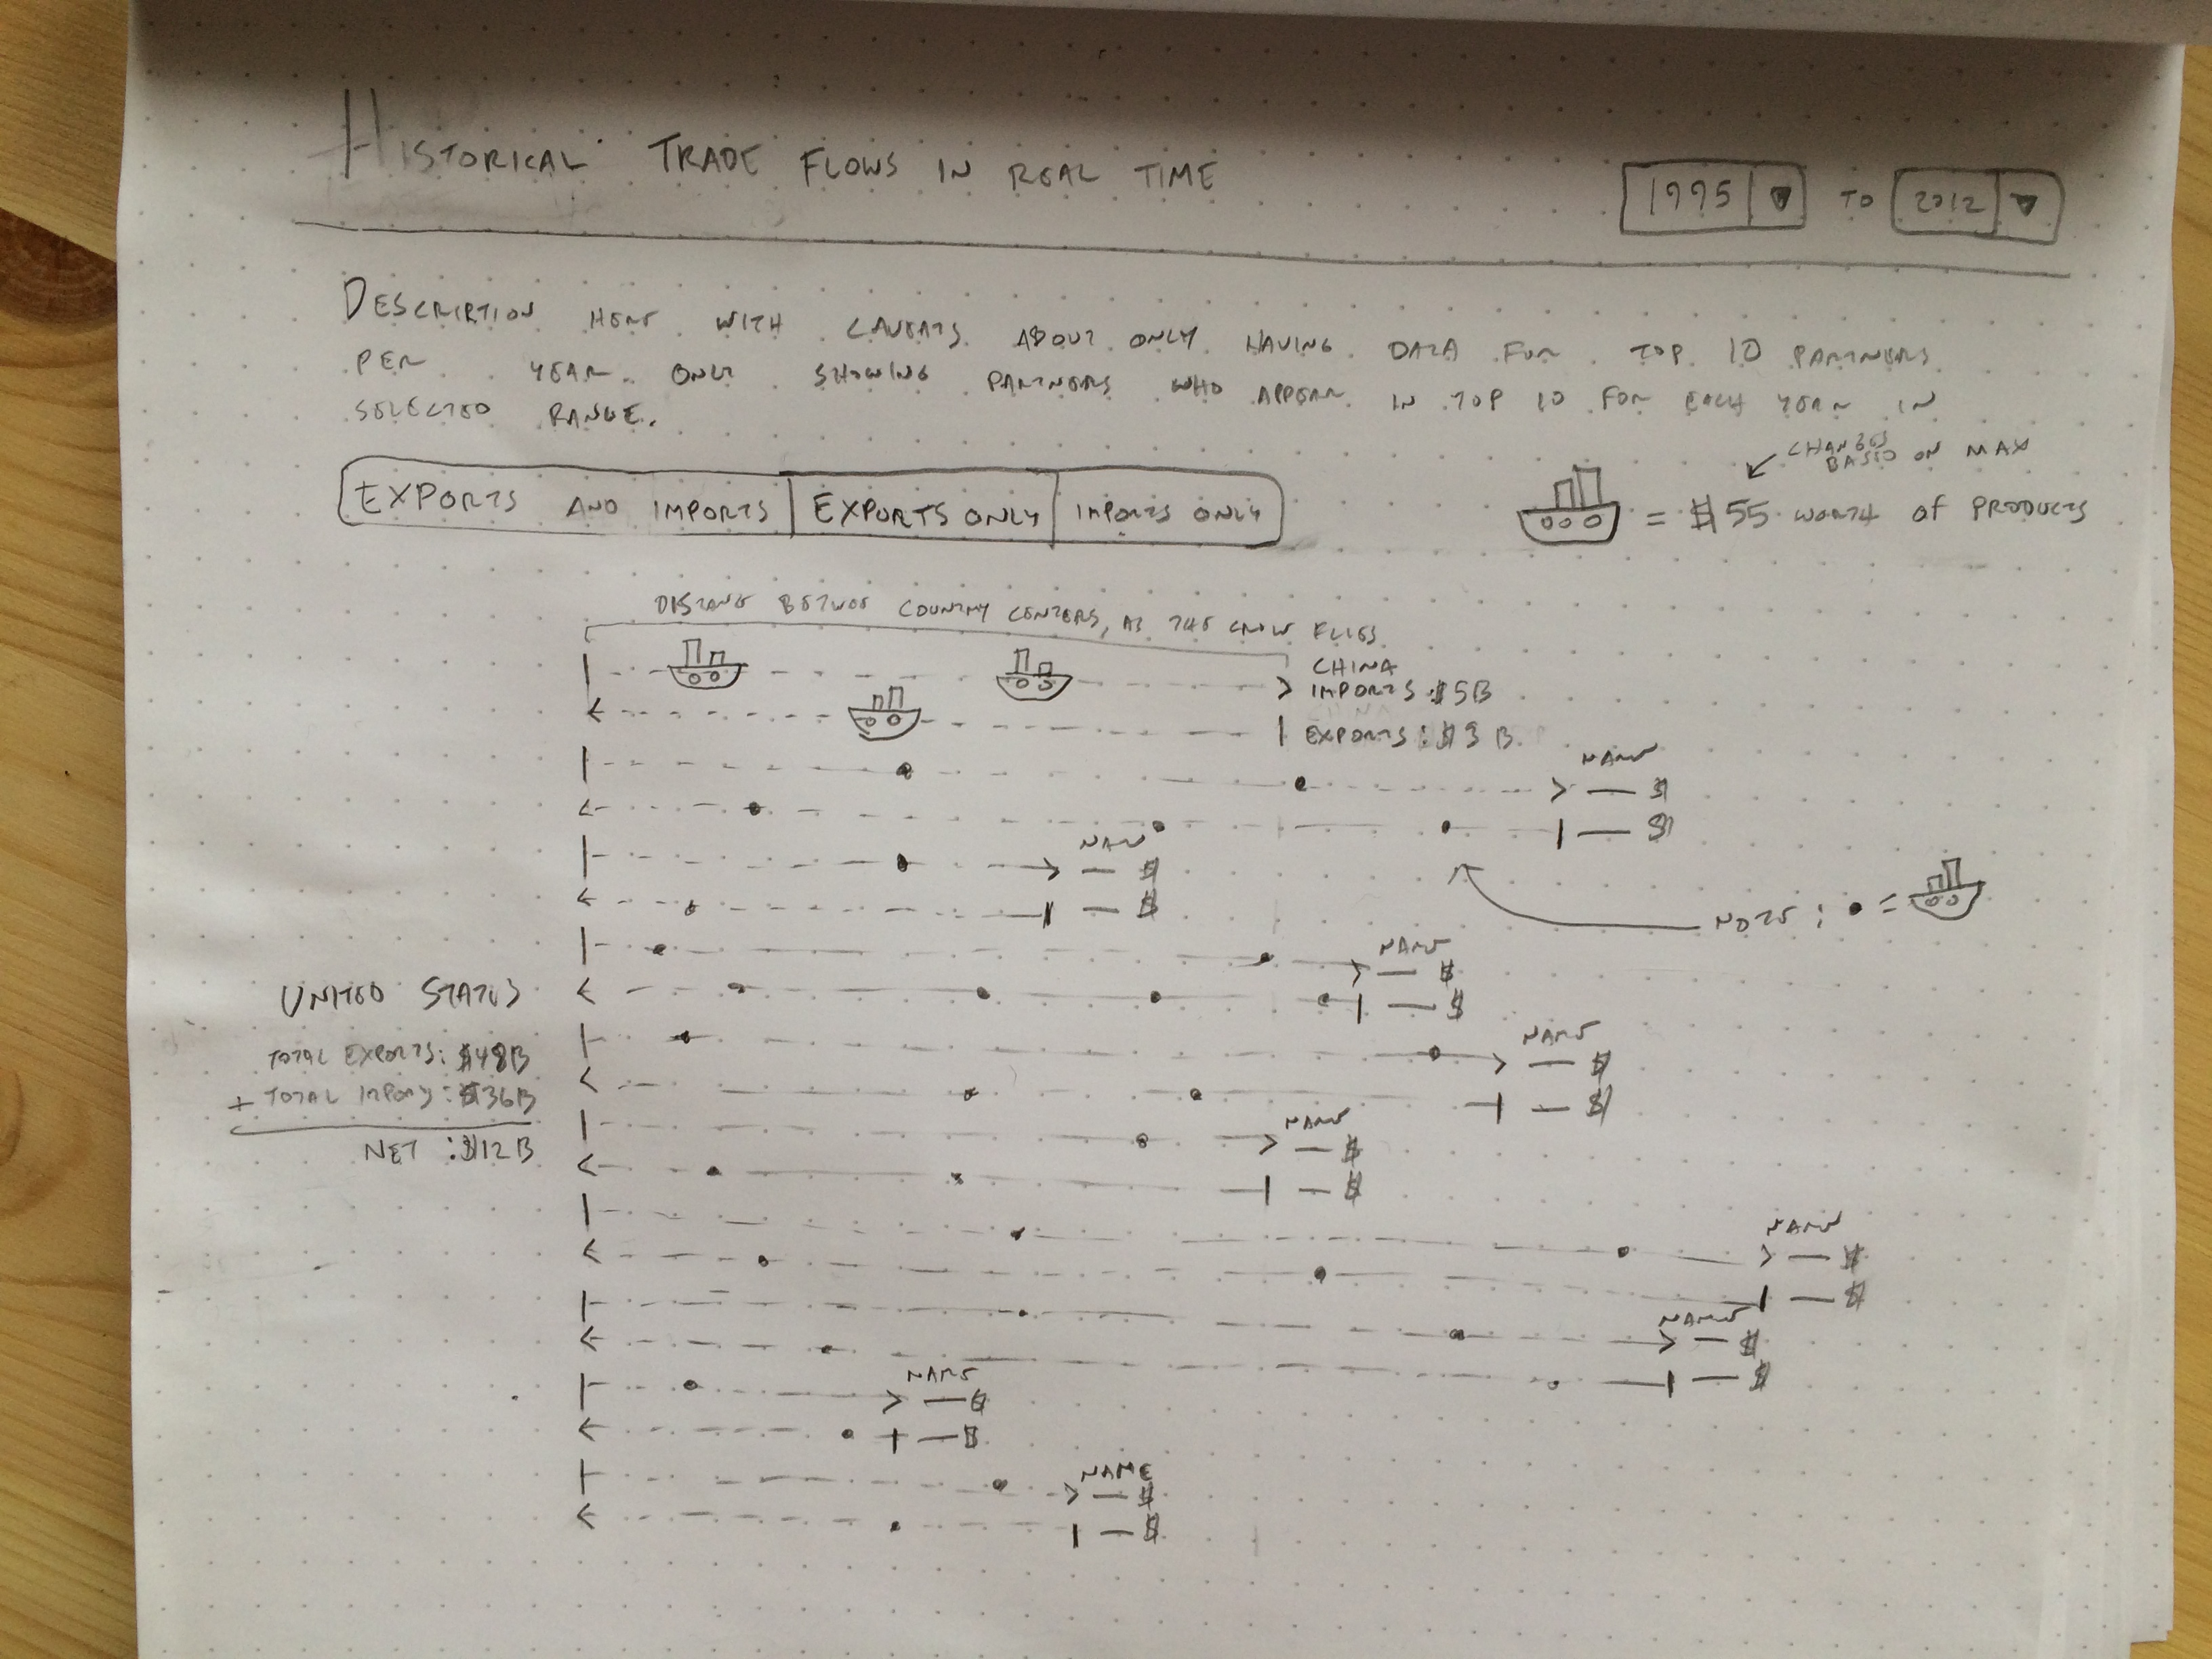 HISTORICAL TRADE FLOWS IN REAL TIME
1995 TO 2012
DESCRIPTION HERE WITH CAVEATS ABOUT ONLY HAVING DATA FOR TOP 10 PARTNERS
PER YEAR. ONLY SHOWING PARTNERS WHO APPEAR IN TOP 10 FOR EACH YEAR IN
SELECTED RANGE.
CHANGES
BASED ON MAX
EXPORTS AND IMPORTS EXPORTS ONLY IMPORTS ONLY
= $55 WORTH OF PRODUCTS
DISTANCE BETWEE COUNTRY CENTERS, AS THE CROW FLIES
CHINA
IMPORTS $5B
EXPORTS: $3B
NAME
— $
— $
NAME
— $
— $
NOTE: • =
NAME
— $
— $
UNITED STATES
TOTAL EXPORTS: $48B
+ TOTAL IMPORTS: $36B
NET: $12B
NAME
— $
— $
NAME
— $
— $
NAME
— $
— $
NAME
— $
— $
NAME
— $
— $
NAME
— $
— $